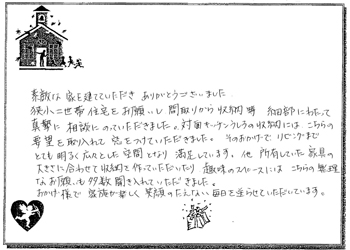 素敵な 家を建てていただき ありがとうございました
狭小二世帯住宅をお願いし 間取りから収納等 細部にわたって
真摯に 相談にのっていただきました。対面キッチンうしろの収納には こちらの
希望を取り入れて 窓をつけていただきました。そのおかげで リビングまで
とても明るく広々とした空間となり 満足しています。他 所有していた家具の
大きさに合わせて収納を作っていただいたり 趣味のスペースには こちらの無理
なお願いも多数聞き入れていただきました。
おかげ様で 家族が楽しく 笑顔のたえない 毎日を送らせていただいています。